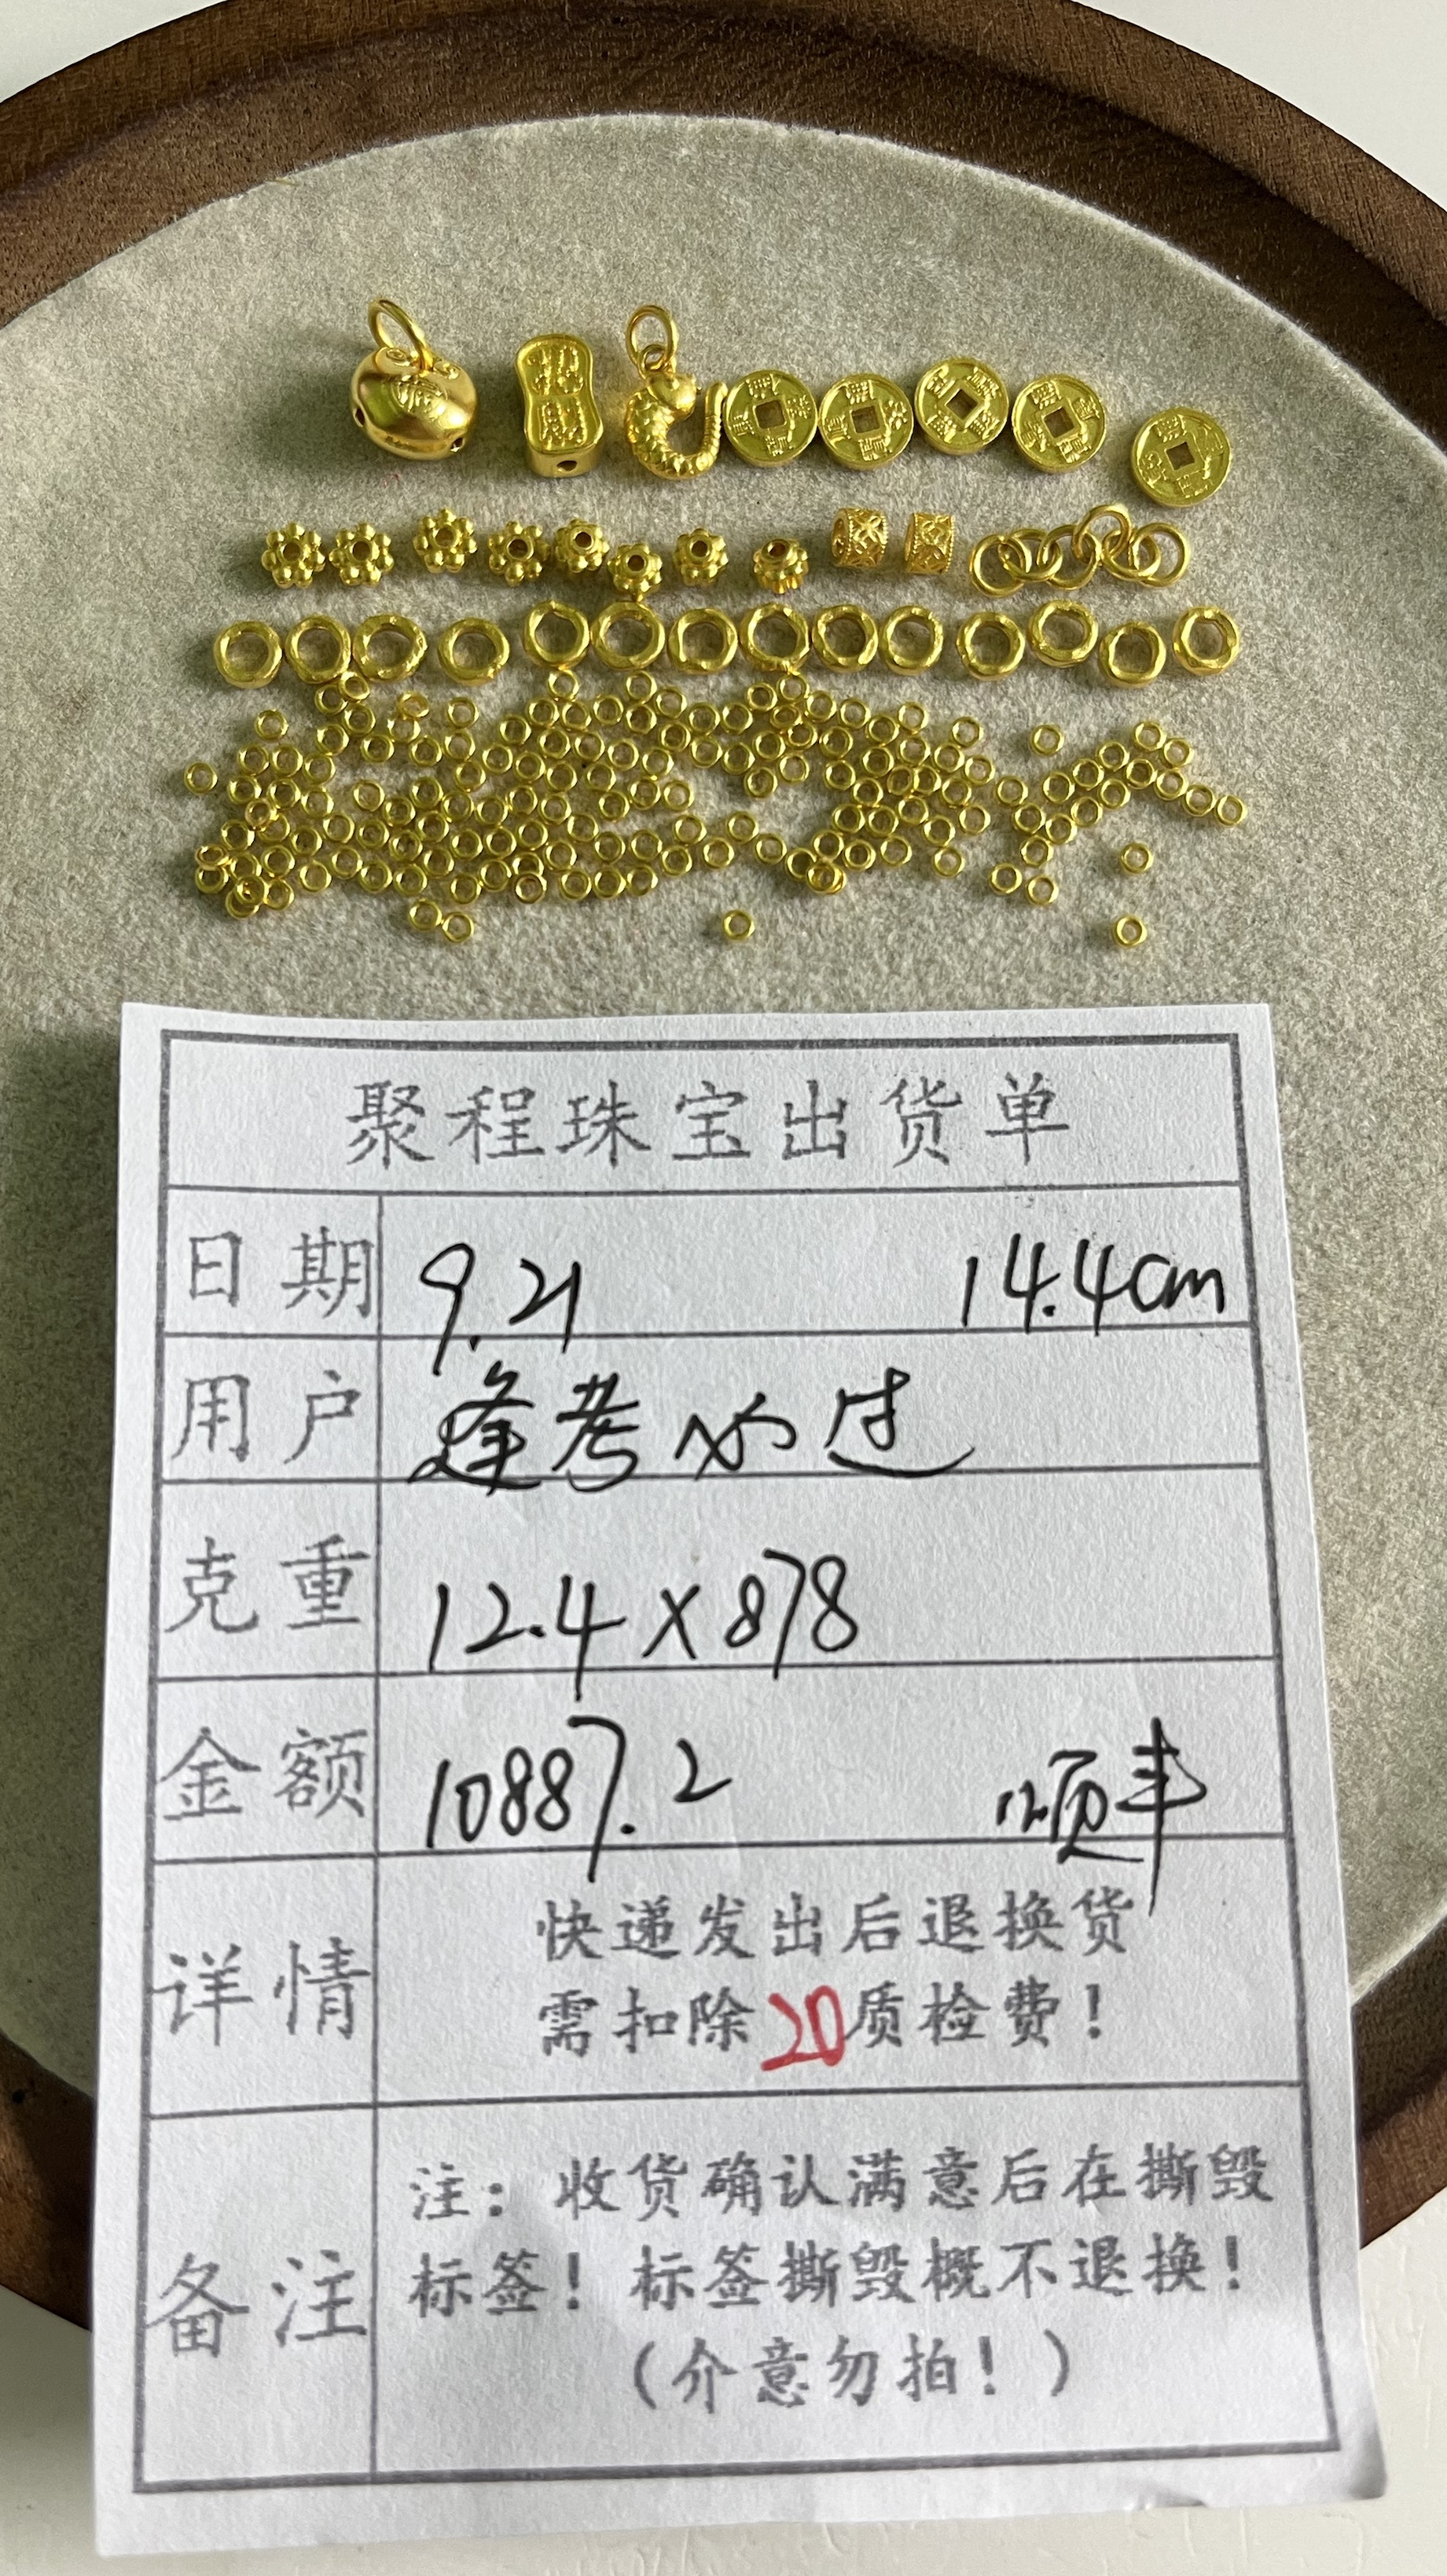 聚程珠宝出货单
日期 9.21 14.4cm
用户 逢考必过
克重 12.4×878
金额 10887.2 顺丰
详情 快递发出后退换货
需扣除20质检费！
备注 注：收货确认满意后在撕毁
标签！标签撕毁概不退换！
（介意勿拍！）